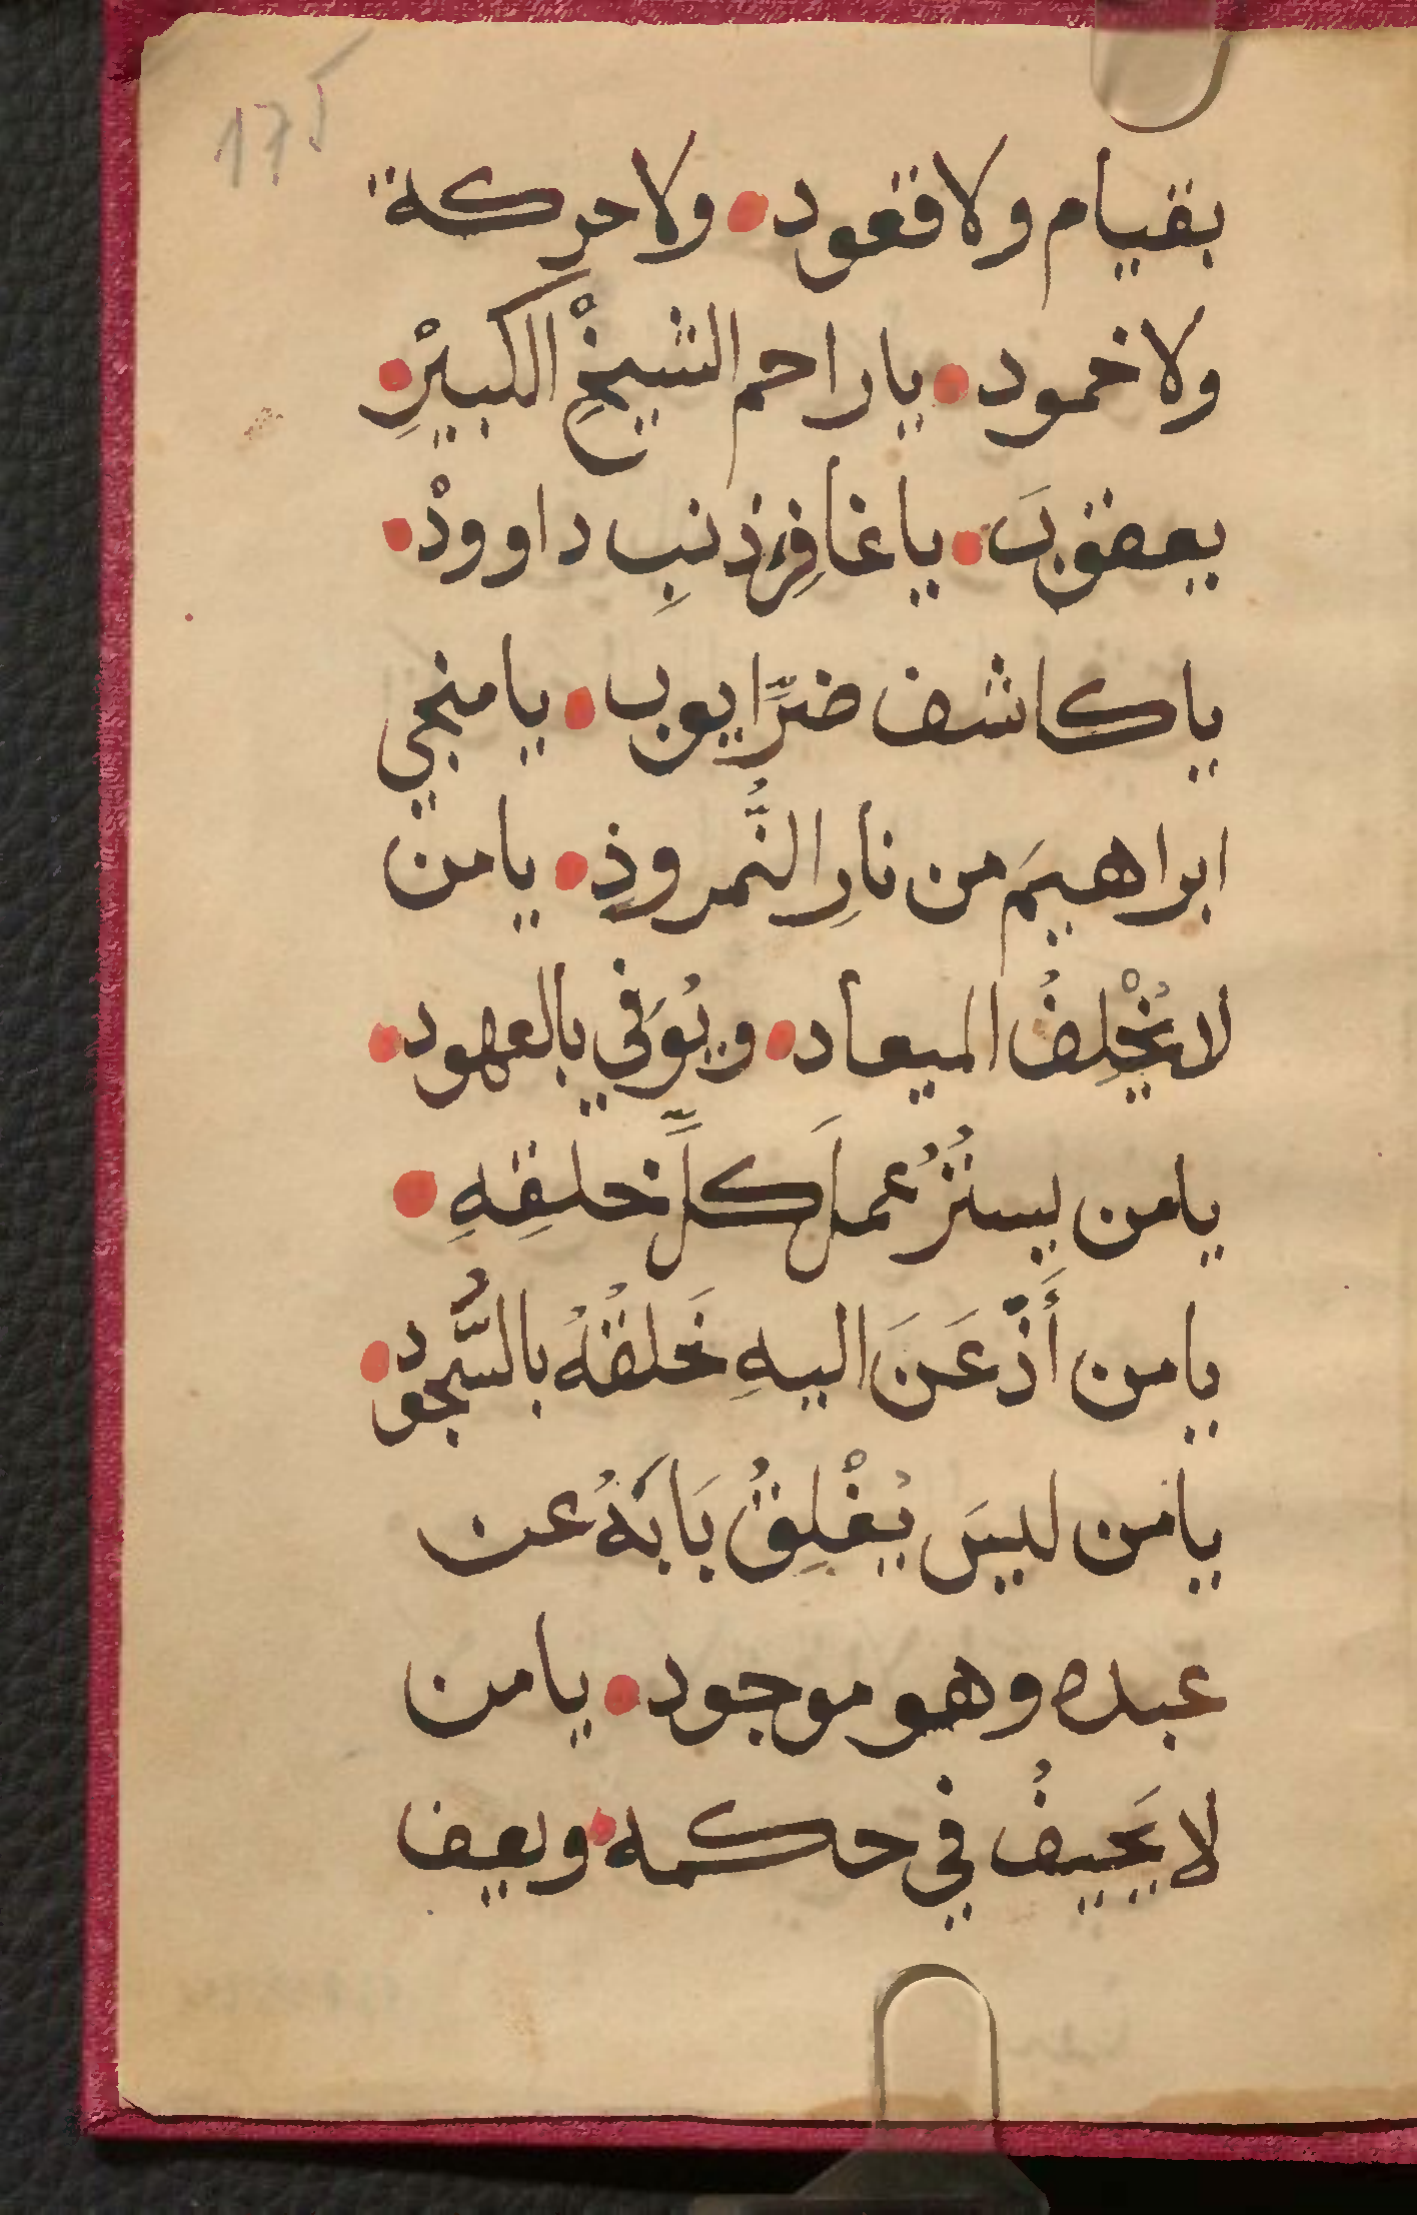 175
بقيام ولا قعود • ولا حركة
ولا خمود • يا راحم الشيخِْ الكبيْرِ •
يعقوبَ • يا غافِر ذنبِ داوودْ •
يا كاشف ضرِّ ايوب • يا منجي
ابراهيمَ من نارِ النُّمروذِ • يا من
لا يُخْلِفُ الميعاد • ويُوَفي بالعهود •
يامن يستُرُ عملَ كلِّ خلقِهِ •
يامن أَذّعَنَ اليهِ خَلقُهُ بالسُّجود •
يامن ليسَ يُغْلِقُ بَابَهُ عن
عبده وهو موجود • يا من
لا يَحيفُ في حكمه • ويعف